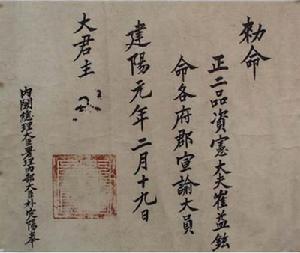 勅命
正二品資憲大夫崔益鉉
命各府郡宣諭大員
建陽元年二月十九日
大君主
內閣總理大臣署理內部大臣朴定陽奉